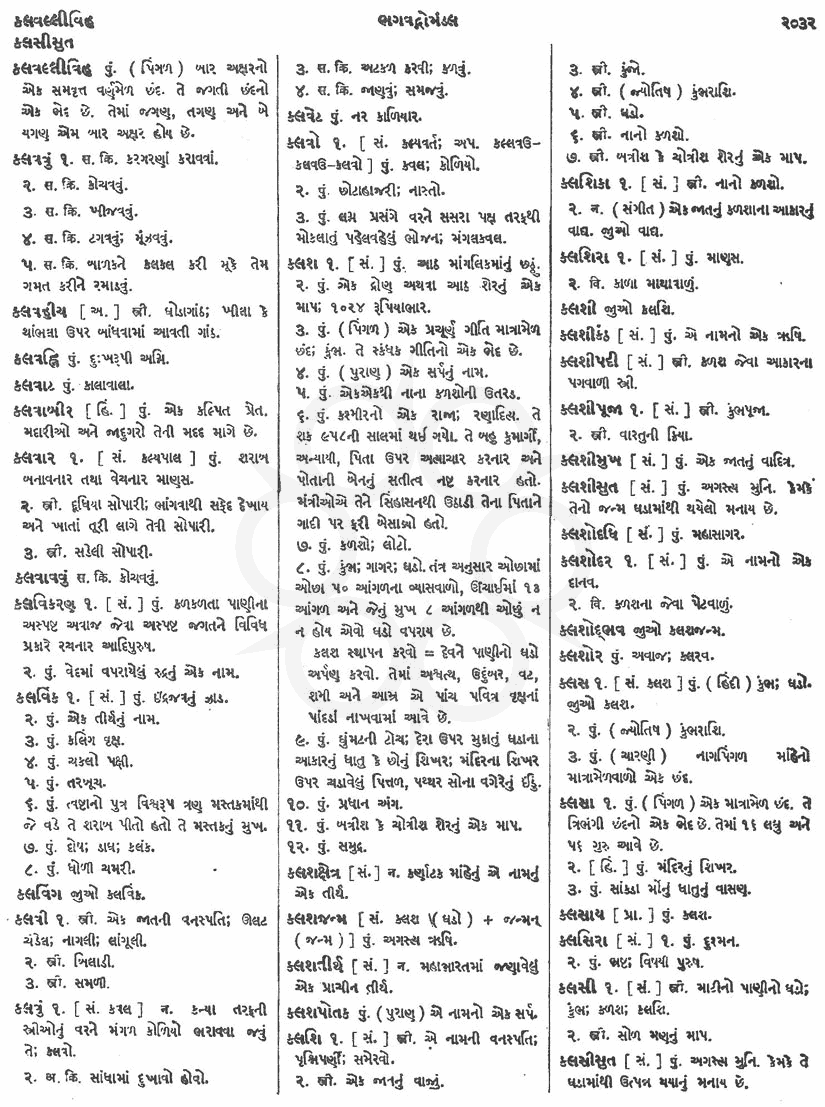 કલવલ્લીવિહ ભગવદ્ગોમંડલ ૨૦૩૨
કલસીસુત
કલવલ્લીવિહ પું. ( પિંગળ ) બાર અક્ષરનો
એક સમવૃત્ત વર્ણમેળ છંદ. તે જગતી છંદનો
એક ભેદ છે. તેમાં જગણ, તગણ અને બે
યગણ એમ બાર અક્ષર હોય છે.
કલવવું ૧. સ. ક્રિ. કરગરણાં કરાવવાં.
૨. સ. ક્રિ. કોચવવું.
૩. સ. ક્રિ. ખીજવવું.
૪. સ. ક્રિ. ટગવવું; મૂંઝવવું.
૫. સ. ક્રિ. બાળકને કલકલ કરી મૂકે તેમ
ગમત કરીને રમાડવું.
કલવહીય [ અ. ] સ્ત્રી. ઘોડાગાંઠ; ખીલા કે
થાંભલા ઉપર બાંધવામાં આવતી ગાંઠ.
કલવહ્નિ પું. દુઃખરૂપી અગ્નિ.
કલવાટ પું. કાલાવાલા.
કલવાબીર [ હિં. ] પું. એક કલ્પિત પ્રેત.
મદારીઓ અને જાદુગરો તેની મદદ માગે છે.
કલવાર ૧. [ સં. કલ્યપાલ ] પું. શરાબ
બનાવનાર તથા વેચનાર માણસ.
૨. સ્ત્રી. દૂધિયા સોપારી; ભાંગવાથી સફેદ દેખાય
અને ખાતાં તૂરી લાગે તેવી સોપારી.
૩. સ્ત્રી. સડેલી સોપારી.
કલવાવવું સ. ક્રિ. કોચવવું.
કલવિકરણ ૧. [ સં. ] પું. કળકળતા પાણીના
અસ્પષ્ટ અવાજ જેવા અસ્પષ્ટ જગતને વિવિધ
પ્રકારે રચનાર આદિપુરુષ.
૨. પું. વેદમાં વપરાયેલું રુદ્રનું એક નામ.
કલવિંક ૧. [ સં. ] પું. ઇંદ્રજવનું ઝાડ.
૨. પું. એક તીર્થનું નામ.
૩. પું. કલિંગ વૃક્ષ.
૪. પું. ચકલો પક્ષી.
૫. પું. તરબૂચ.
૬. પું. ત્વષ્ટાનો પુત્ર વિશ્વરૂપ ત્રણ મસ્તકમાંથી
જે વડે તે શરાબ પીતો હતો તે મસ્તકનું મુખ.
૭. પું. દોષ; ડાઘ; કલંક.
૮. પું. ધોળી ચમરી.
કલવિંગ જુઓ કલવિંક.
કલવી ૧. સ્ત્રી. એક જાતની વનસ્પતિ; ઊલટ
ચંડેલ; નાગલી; લાંગૂલી.
૨. સ્ત્રી. બિલાડી.
૩. સ્ત્રી. સમળી.
કલવું ૧. [ સં. કવલ ] ન. કન્યા તરફની
સ્ત્રીઓનું વરને મંગળ કોળિયો ભરાવવા જવું
તે; કલવો.
૨. અ. ક્રિ. સાંધામાં દુખાવો હોવો.
૩. સ. ક્રિ. અટકળ કરવી; કળવું.
૪. સ. ક્રિ. જાણવું; સમજવું.
કલવેટ પું. નર કાળિયાર.
કલવો ૧. [ સં. કલ્યવર્ત; અપ. કલ્લવઉ-
કલવઉ-કલવો ] પું. કવલ; કોળિયો.
૨. પું. છોટાહાજરી; નાસ્તો.
૩. પું. લગ્ન પ્રસંગે વરને સસરા પક્ષ તરફથી
મોકલાતું પહેલવહેલું ભોજન; મંગલકવલ.
કલશ ૧. [ સં. ] પું. આઠ માંગલિકમાંનું છઠ્ઠું.
૨. પું. એક દ્રોણ અથવા આઠ શેરનું એક
માપ; ૧૦૨૪ રૂપિયાભાર.
૩. પું. ( પિંગળ ) એક પ્રચૂર્ણ ગીતિ માત્રામેળ
છંદ; કુંભ. તે સ્કંધક ગીતિનો એક ભેદ છે.
૪. પું. ( પુરાણ ) એક સર્પનું નામ.
૫. પું. એકએકથી નાના કળશોની ઉતરડ.
૬. પું. કાશ્મીરનો એક રાજા; રણાદિત્ય. તે
શક ૯૫૮ની સાલમાં થઈ ગયો. તે બહુ કુમાર્ગી,
અન્યાયી, પિતા ઉપર અત્યાચાર કરનાર અને
પોતાની બેનનું સતીત્વ નષ્ટ કરનાર હતો.
મંત્રીઓએ તેને સિંહાસનથી ઉઠાડી તેના પિતાને
ગાદી પર ફરી બેસાડ્યો હતો.
૭. પું. કળશો; લોટો.
૮. પું. કુંભ; ગાગર; ઘડો. તંત્ર અનુસાર ઓછામાં
ઓછા ૫૦ આંગળના વ્યાસવાળો, ઊંચાઈમાં ૧૬
આંગળ અને જેનું મુખ ૮ આંગળથી ઓછું ન
ન હોય એવો ઘડો વપરાય છે.
કલશ સ્થાપન કરવો = દેવને પાણીનો ઘડો
અર્પણ કરવો. તેમાં અશ્વત્થ, ઉદુંબર, વટ,
શમી અને આમ્ર એ પાંચ પવિત્ર વૃક્ષનાં
પાંદડાં નાખવામાં આવે છે.
૯. પું. ઘુંમટની ટોચ; દેરા ઉપર મુકાતું ઘડાના
આકારનું ધાતુ કે છોનું શિખર; મંદિરના શિખર
ઉપર ચડાવેલું પિત્તળ, પથ્થર સોના વગેરેનું ઈંડું.
૧૦. પું. પ્રધાન અંગ.
૧૧. પું. બત્રીશ કે ચોત્રીશ શેરનું એક માપ.
૧૨. પું. સમુદ્ર.
કલશક્ષેત્ર [ સં. ] ન. કર્ણાટક માંહેનું એ નામનું
એક તીર્થ.
કલશજન્મ [ સં. કલશ ( ઘડો ) + જન્મન્
( જન્મ ) ] પું. અગસ્ત્ય ઋષિ.
કલશતીર્થ [ સં. ] ન. મહાભારતમાં જણાવેલું
એક પ્રાચીન તીર્થ.
કલશપોતક પું. ( પુરાણ ) એ નામનો એક સર્પ.
કલશિ ૧. [ સં. ] સ્ત્રી. એ નામની વનસ્પતિ;
પૃશ્નિપર્ણી; સમેરવો.
૨. સ્ત્રી. એક જાતનું વાજું.
૩. સ્ત્રી. કુંજો.
૪. સ્ત્રી. ( જ્યોતિષ ) કુંભરાશિ.
૫. સ્ત્રી. ઘડો.
૬. સ્ત્રી. નાનો કળશો.
૭. સ્ત્રી. બત્રીશ કે ચોત્રીશ શેરનું એક માપ.
કલશિકા ૧. [ સં. ] સ્ત્રી. નાનો કળશો.
૨. ન. ( સંગીત ) એક જાતનું કળશાના આકારનું
વાદ્ય. જુઓ વાદ્ય.
કલશિરા ૧. [ સં. ] પું. માણસ.
૨. વિ. કાળા માથાવાળું.
કલશી જુઓ કલશિ.
કલશીકંઠ [ સં. ] પું. એ નામનો એક ઋષિ.
કલશીપદી [ સં. ] સ્ત્રી. કળશ જેવા આકારના
પગવાળી સ્ત્રી.
કલશીપૂજા ૧. [ સં. ] સ્ત્રી. કુંભપૂજા.
૨. સ્ત્રી. વાસ્તુની ક્રિયા.
કલશીમુખ [ સં. ] પું. એક જાતનું વાદિત્ર.
કલશીસુત [ સં. ] પું. અગસ્ત્ય મુનિ. કેમકે
તેનો જન્મ ઘડામાંથી થયેલો મનાય છે.
કલશોદધિ [ સં. ] પું. મહાસાગર.
કલશોદર ૧. [ સં. ] પું. એ નામનો એક
દાનવ.
૨. વિ. કળશના જેવા પેટવાળું.
કલશોદ્ભવ જુઓ કલશજન્મ.
કલશોર પું. અવાજ; કલરવ.
કલસ ૧. [ સં. કલશ ] પું. ( હિંદી ) કુંભ; ઘડો.
જુઓ કલશ.
૨. પું. ( જ્યોતિષ ) કુંભરાશિ.
૩. પું. ( ચારણી ) નાગપિંગળ માંહેનો
માત્રામેળવાળો એક છંદ.
કલસા ૧. પું. ( પિંગળ ) એક માત્રામેળ છંદ. તે
ત્રિભંગી છંદનો એક ભેદ છે. તેમાં ૧૬ લઘુ અને
૫૬ ગુરુ આવે છે.
૨. [ હિં. ] પું. મંદિરનું શિખર.
૩. પું. સાંકડા મોંનું ધાતુનું વાસણ.
કલસાય [ પ્રા. ] પું. કલશ.
કલસિરા [ સં. ] ૧. પું. દુશ્મન.
૨. પું. ભ્રષ્ટ; વિષયી પુરુષ.
કલસી ૧. [ સં. ] સ્ત્રી. માટીનો પાણીનો ઘડો;
કુંભ; કળશ; કલશિ.
૨. સ્ત્રી. સોળ મણનું માપ.
કલસીસુત [ સં. ] પું. અગસ્ત્ય મુનિ. કેમકે તે
ઘડામાંથી ઉત્પન્ન થયાનું મનાય છે.